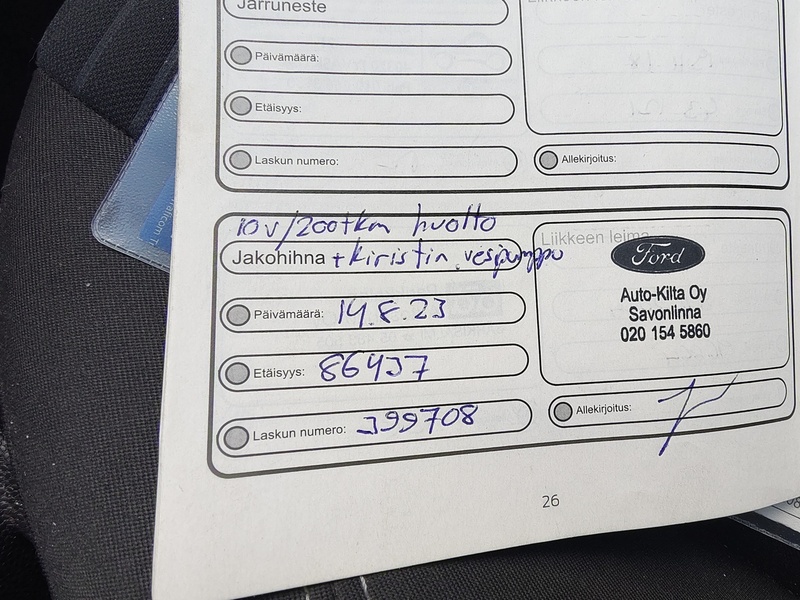 Jarruneste
Päivämäärä:
Etäisyys:
Laskun numero:
Allekirjoitus:
10v/200tkm huolto
Jakohihna + kiristin, vesipumppu
Liikkeen leima
Ford
Auto-Kilta Oy
Savonlinna
020 154 5860
Päivämäärä: 14.8.23
Etäisyys: 86457
Laskun numero: 399708
Allekirjoitus:
26